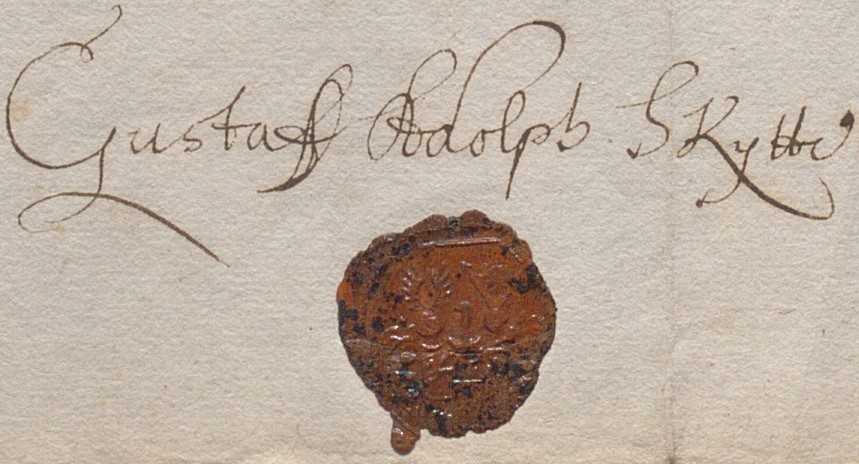 Gustaff Adolph Skytte